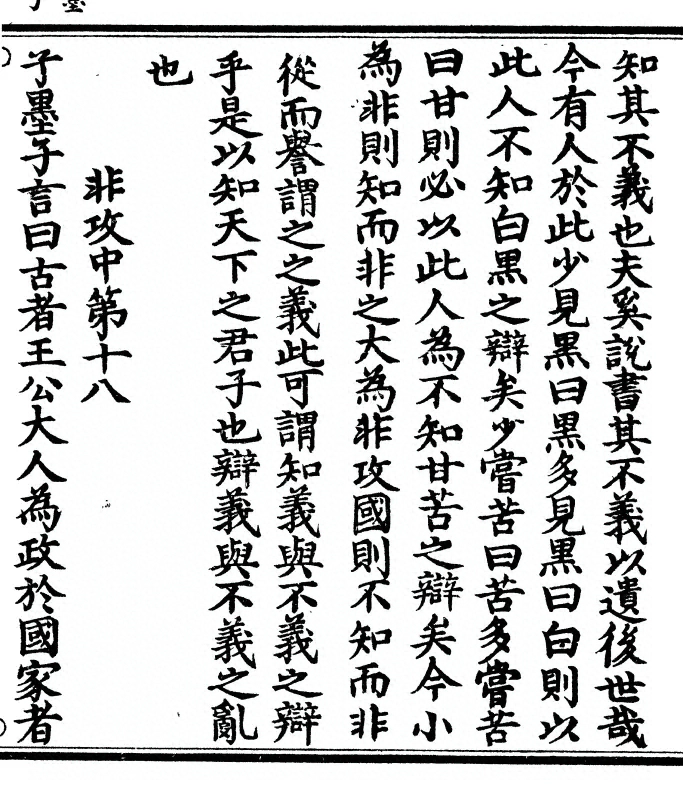 知其不義也夫奚說書其不義以遺後世哉
今有人於此少見黑曰黑多見黑曰白則以
此人不知白黑之辯矣少嘗苦曰苦多嘗苦
曰甘則必以此人為不知甘苦之辯矣今小
為非則知而非之大為非攻國則不知而非
從而譽謂之之義此可謂知義與不義之辯
乎是以知天下之君子也辯義與不義之亂
也
非攻中第十八
子墨子言曰古者王公大人為政於國家者